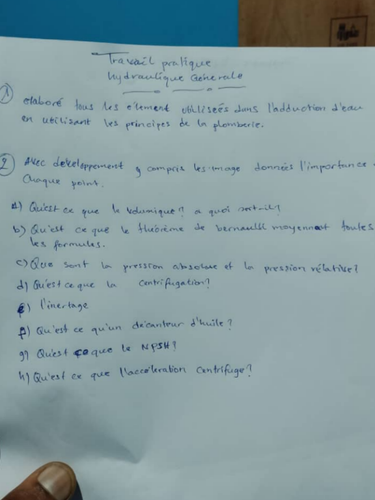 Travail pratique
hydraulique Generale
1) elaboré tous les element utilisées dans l'adduction d'eau
en utilisant les principes de la plomberie.
2) Avec developpement y compris les image données l'importance
chaque point.
a) Qu'est ce que le volumique? a quoi sert-il?
b) Qu'est ce que le théorème de bernaulli moyennant toutes
les formules.
c) Que sont la pression absolue et la pression rélative?
d) Qu'est ce que la centrifugation?
e) l'inertage
f) Qu'est ce qu'un décanteur d'huile?
g) Qu'est ce que le NPSH?
h) Qu'est ce que l'accéleration centrifuge?